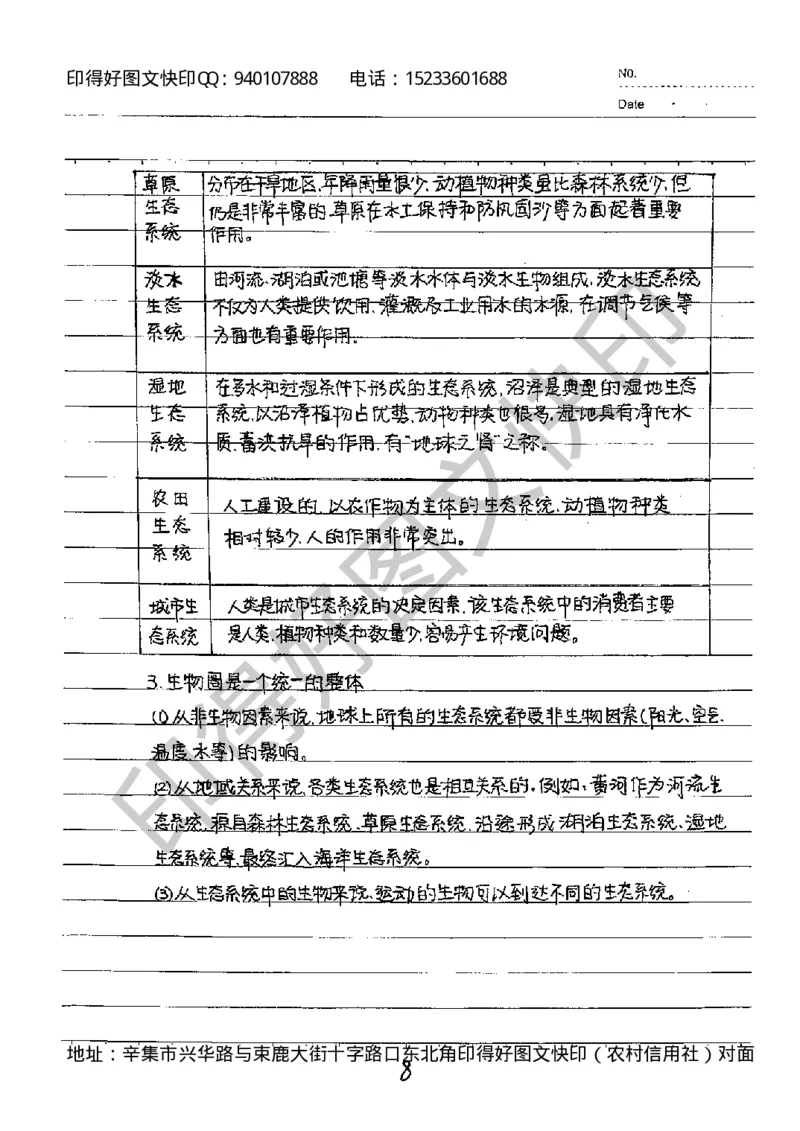 印得好图文快印QQ：940107888 电话：15233601688
No.
Date
草原 分布在干旱地区,年降雨量很少,动植物种类虽比森林系统少,但
生态 仍是非常丰富的,草原在水土保持和防风固沙等方面起着重要
系统 作用。
淡水 由河流、湖泊或池塘等淡水水体与淡水生物组成,淡水生态系统
生态 不仅为人类提供饮用、灌溉及工业用水的水源,在调节气候等
系统 方面也有重要作用.
湿地 在多水和过湿条件下形成的生态系统,沼泽是典型的湿地生态
生态 系统,以沼泽植物占优势,动物种类也很多,湿地具有净化水
系统 质、蓄洪抗旱的作用,有“地球之肾”之称。
农田 人工建设的,以农作物为主体的生态系统,动植物种类
生态 相对较少,人的作用非常突出。
系统
城市生 人类是城市生态系统的决定因素,该生态系统中的消费者主要
态系统 是人类,植物种类和数量少,容易产生环境问题。
3.生物圈是一个统一的整体
(1)从非生物因素来说,地球上所有的生态系统都受非生物因素(阳光、空气、
温度、水等)的影响。
(2)从地域关系来说,各类生态系统也是相互关系的.例如:黄河作为河流生
态系统,源自森林生态系统、草原生态系统,沿途形成湖泊生态系统、湿地
生态系统等,最终汇入海洋生态系统。
(3)从生态系统中的生物来说,运动的生物可以到达不同的生态系统。
印得好图文快印
地址：辛集市兴华路与束鹿大街十字路口东北角印得好图文快印（农村信用社）对面
8